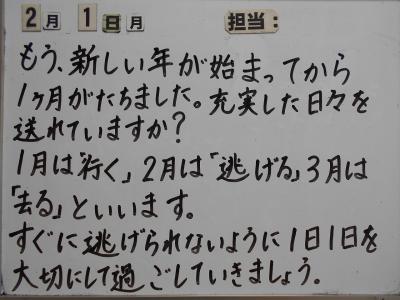 2月 1日月 担当:
もう、新しい年が始まってから
1ヶ月がたちました。充実した日々を
送れていますか?
1月は「行く」2月は「逃げる」3月は
「去る」といいます。
すぐに逃げられないように1日1日を
大切にして過ごしていきましょう。